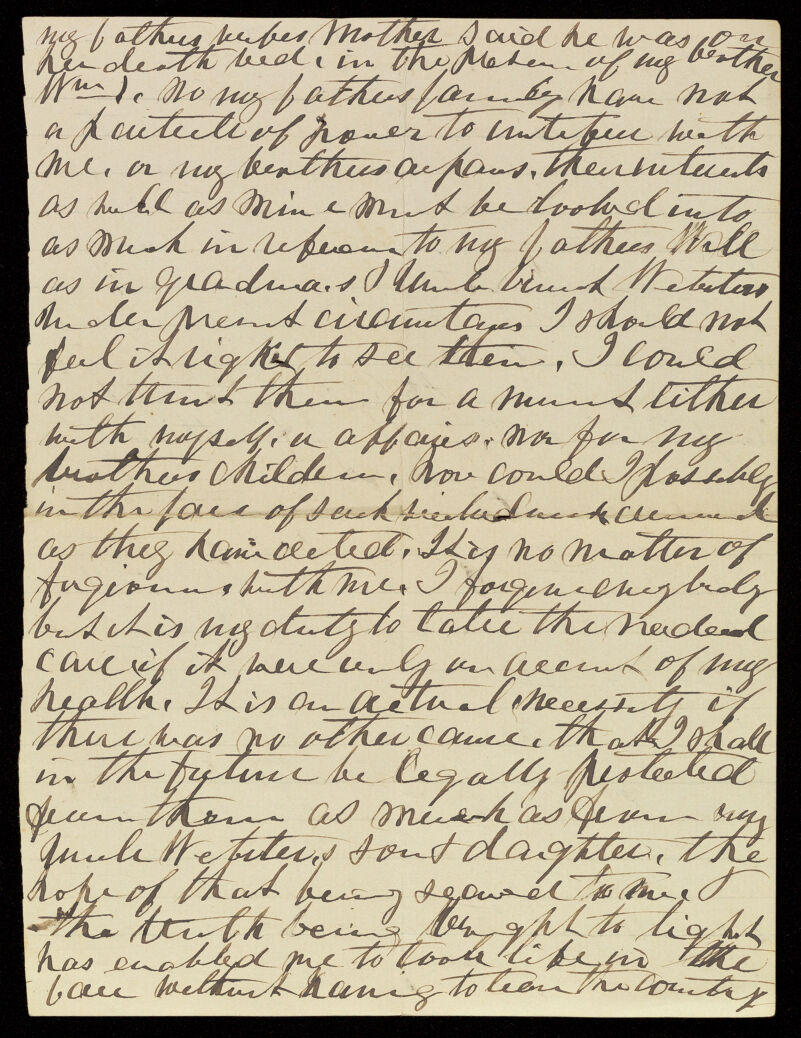 my fathers wifes Mother said he was on
her death bed, in the presence of my brother
Wm). No my fathers family have not
a particle of power to interfere with
me, or my brothers orphans, their interests
as well as mine must be looked into
as much in reference to my fathers Will
as in Gradma,s & Uncle Websters
Under present circumstances I should not
feel it right to see them, I could
not trust them for a moment either
with myself, or affairs, nor for my
brothers children, how could I possibly
in the face of such
as they have acted. It is no matter of
forgiveness with me. I forgive everybody
but it is my duty to take the needed
care if it were only on account of my
health, It is an actual necessity if
there was no other cause, that I shall
in the future be legally protected
from them as much as from my
Uncle Webster,s son & daughter, the
hope of that being secured to me &
the truth being brought to light
has enabled me to look life in the
face without having to leave the country